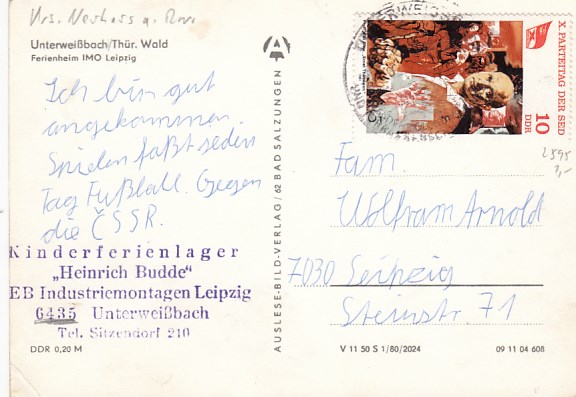 Krs. Neuhaus a. Rwg.
Unterweißbach/Thür. Wald
Ferienheim IMO Leipzig
Ich bin gut
angekommen.
Spielen faßt jeden
Tag Fußball. Gegen
die ČSSR.
Kinderferienlager
„Heinrich Budde"
EB Industriemontagen Leipzig
6435 Unterweißbach
Tel. Sitzendorf 210
DDR 0,20 M
AUSLESE-BILD-VERLAG/62 BAD SALZUNGEN
X. PARTEITAG DER SED
10
DDR
2595
1,-
Fam.
Wolfram Arnold
7030 Leipzig
Steinstr. 71
V 11 50 S 1/80/2024
09 11 04 608